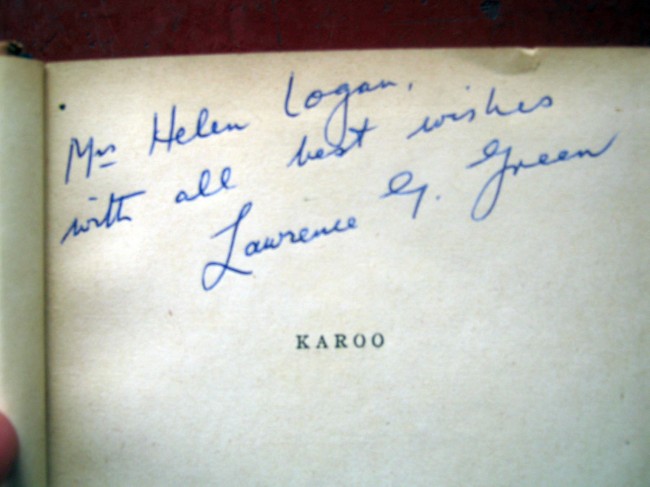 Mrs Helen Logan,
with all best wishes
Lawrence G. Green
KAROO